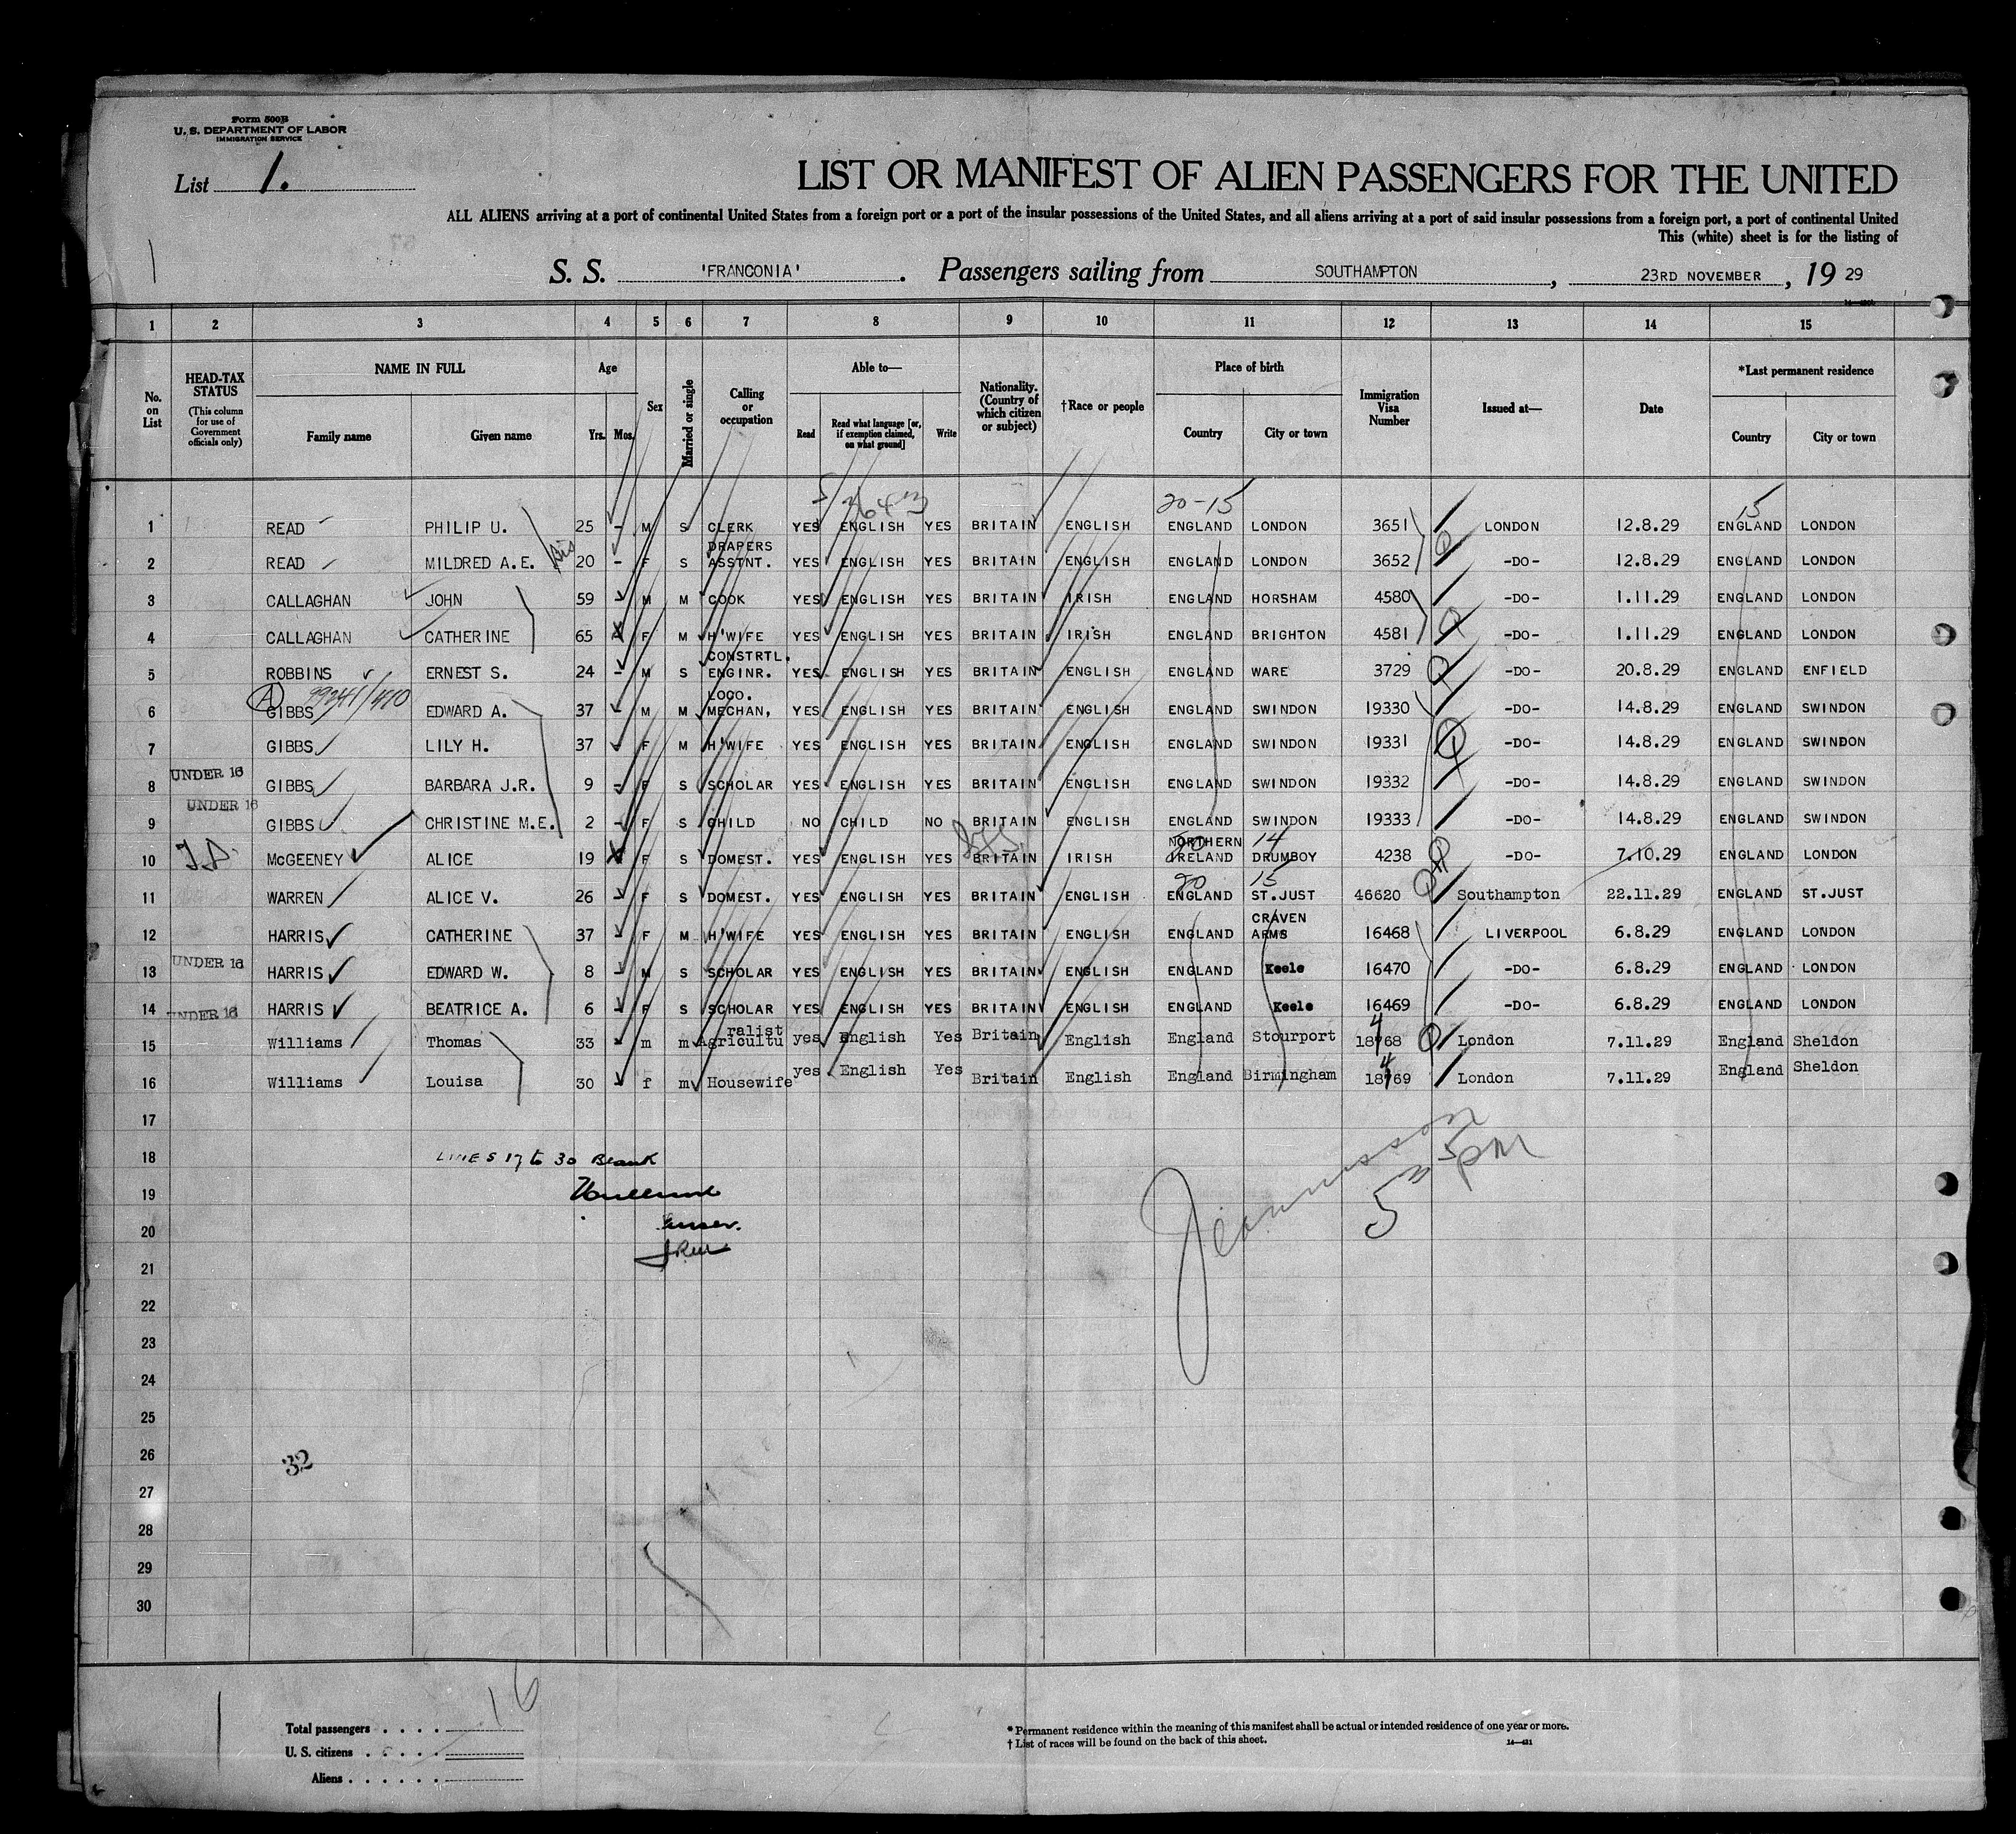 Form 500B
U. S. DEPARTMENT OF LABOR
IMMIGRATION SERVICE
List 1.
LIST OR MANIFEST OF ALIEN PASSENGERS FOR THE UNITED
ALL ALIENS arriving at a port of continental United States from a foreign port or a port of the insular possessions of the United States, and all aliens arriving at a port of said insular possessions from a foreign port, a port of continental United
This (white) sheet is for the listing of
S. S. 'FRANCONIA'. Passengers sailing from SOUTHAMPTON, 23RD NOVEMBER, 19 29
1 2 3 4 5 6 7 8 9 10 11 12 13 14 15
No. on List
HEAD-TAX STATUS (This column for use of Government officials only)
NAME IN FULL
Family name Given name
Age
Yrs. Mos.
Sex
Married or single
Calling or occupation
Able to—
Read Read what language [or, if exemption claimed, on what ground] Write
Nationality. (Country of which citizen or subject)
†Race or people
Place of birth
Country City or town
Immigration Visa Number
Issued at—
Date
*Last permanent residence
Country City or town
20-15 15
1 READ PHILIP U. 25 - M S CLERK YES ENGLISH YES BRITAIN ENGLISH ENGLAND LONDON 3651 LONDON 12.8.29 ENGLAND LONDON
2 READ MILDRED A.E. sis 20 - F S DRAPERS ASSTNT. YES ENGLISH YES BRITAIN ENGLISH ENGLAND LONDON 3652 -DO- 12.8.29 ENGLAND LONDON
3 CALLAGHAN JOHN 59 - M M COOK YES ENGLISH YES BRITAIN IRISH ENGLAND HORSHAM 4580 -DO- 1.11.29 ENGLAND LONDON
4 CALLAGHAN CATHERINE 65 F M H'WIFE YES ENGLISH YES BRITAIN IRISH ENGLAND BRIGHTON 4581 -DO- 1.11.29 ENGLAND LONDON
5 ROBBINS ERNEST S. 24 - M S CONSTRTL. ENGINR. YES ENGLISH YES BRITAIN ENGLISH ENGLAND WARE 3729 -DO- 20.8.29 ENGLAND ENFIELD
A 99241/410
6 GIBBS EDWARD A. 37 - M M LOCO. MECHAN, YES ENGLISH YES BRITAIN ENGLISH ENGLAND SWINDON 19330 -DO- 14.8.29 ENGLAND SWINDON
7 GIBBS LILY H. 37 - F M H'WIFE YES ENGLISH YES BRITAIN ENGLISH ENGLAND SWINDON 19331 -DO- 14.8.29 ENGLAND SWINDON
8 UNDER 16 GIBBS BARBARA J.R. 9 - F S SCHOLAR YES ENGLISH YES BRITAIN ENGLISH ENGLAND SWINDON 19332 -DO- 14.8.29 ENGLAND SWINDON
9 UNDER 16 GIBBS CHRISTINE M.E. 2 - F S CHILD NO CHILD NO BRITAIN ENGLISH ENGLAND SWINDON 19333 -DO- 14.8.29 ENGLAND SWINDON
10 McGEENEY ALICE 19 F S DOMEST. YES ENGLISH YES BRITAIN IRISH NORTHERN IRELAND 14 DRUMBOY 4238 -DO- 7.10.29 ENGLAND LONDON
20 15
11 WARREN ALICE V. 26 - F S DOMEST. YES ENGLISH YES BRITAIN ENGLISH ENGLAND ST.JUST 46620 Southampton 22.11.29 ENGLAND ST.JUST
12 HARRIS CATHERINE 37 - F M H'WIFE YES ENGLISH YES BRITAIN ENGLISH ENGLAND CRAVEN ARMS 16468 LIVERPOOL 6.8.29 ENGLAND LONDON
13 UNDER 16 HARRIS EDWARD W. 8 - M S SCHOLAR YES ENGLISH YES BRITAIN ENGLISH ENGLAND Keele 16470 -DO- 6.8.29 ENGLAND LONDON
14 UNDER 16 HARRIS BEATRICE A. 6 - F S SCHOLAR YES ENGLISH YES BRITAIN ENGLISH ENGLAND Keele 16469 -DO- 6.8.29 ENGLAND LONDON
15 Williams Thomas 33 - m m Agricultu ralist yes English Yes Britain English England Stourport 18468 London 7.11.29 England Sheldon
16 Williams Louisa 30 f m Housewife yes English Yes Britain English England Birmingham 18469 London 7.11.29 England Sheldon
17
18 LINES 17 to 30 Blank
19
20
21
22
23
24
25
26 32
27
28
29
30
5 pm
Total passengers . . . . 16
U. S. citizens . . . .
Aliens . . . . . .
* Permanent residence within the meaning of this manifest shall be actual or intended residence of one year or more.
† List of races will be found on the back of this sheet.